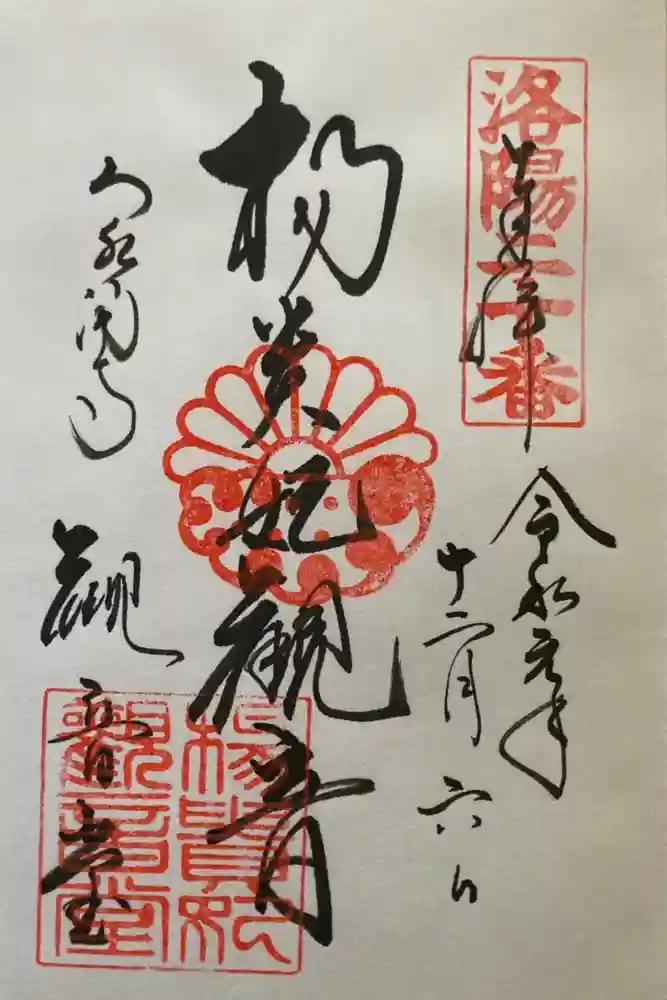 洛陽二十番
奉拝
令和元年
十二月六日
楊貴妃観音
観音堂
楊貴妃
觀音堂